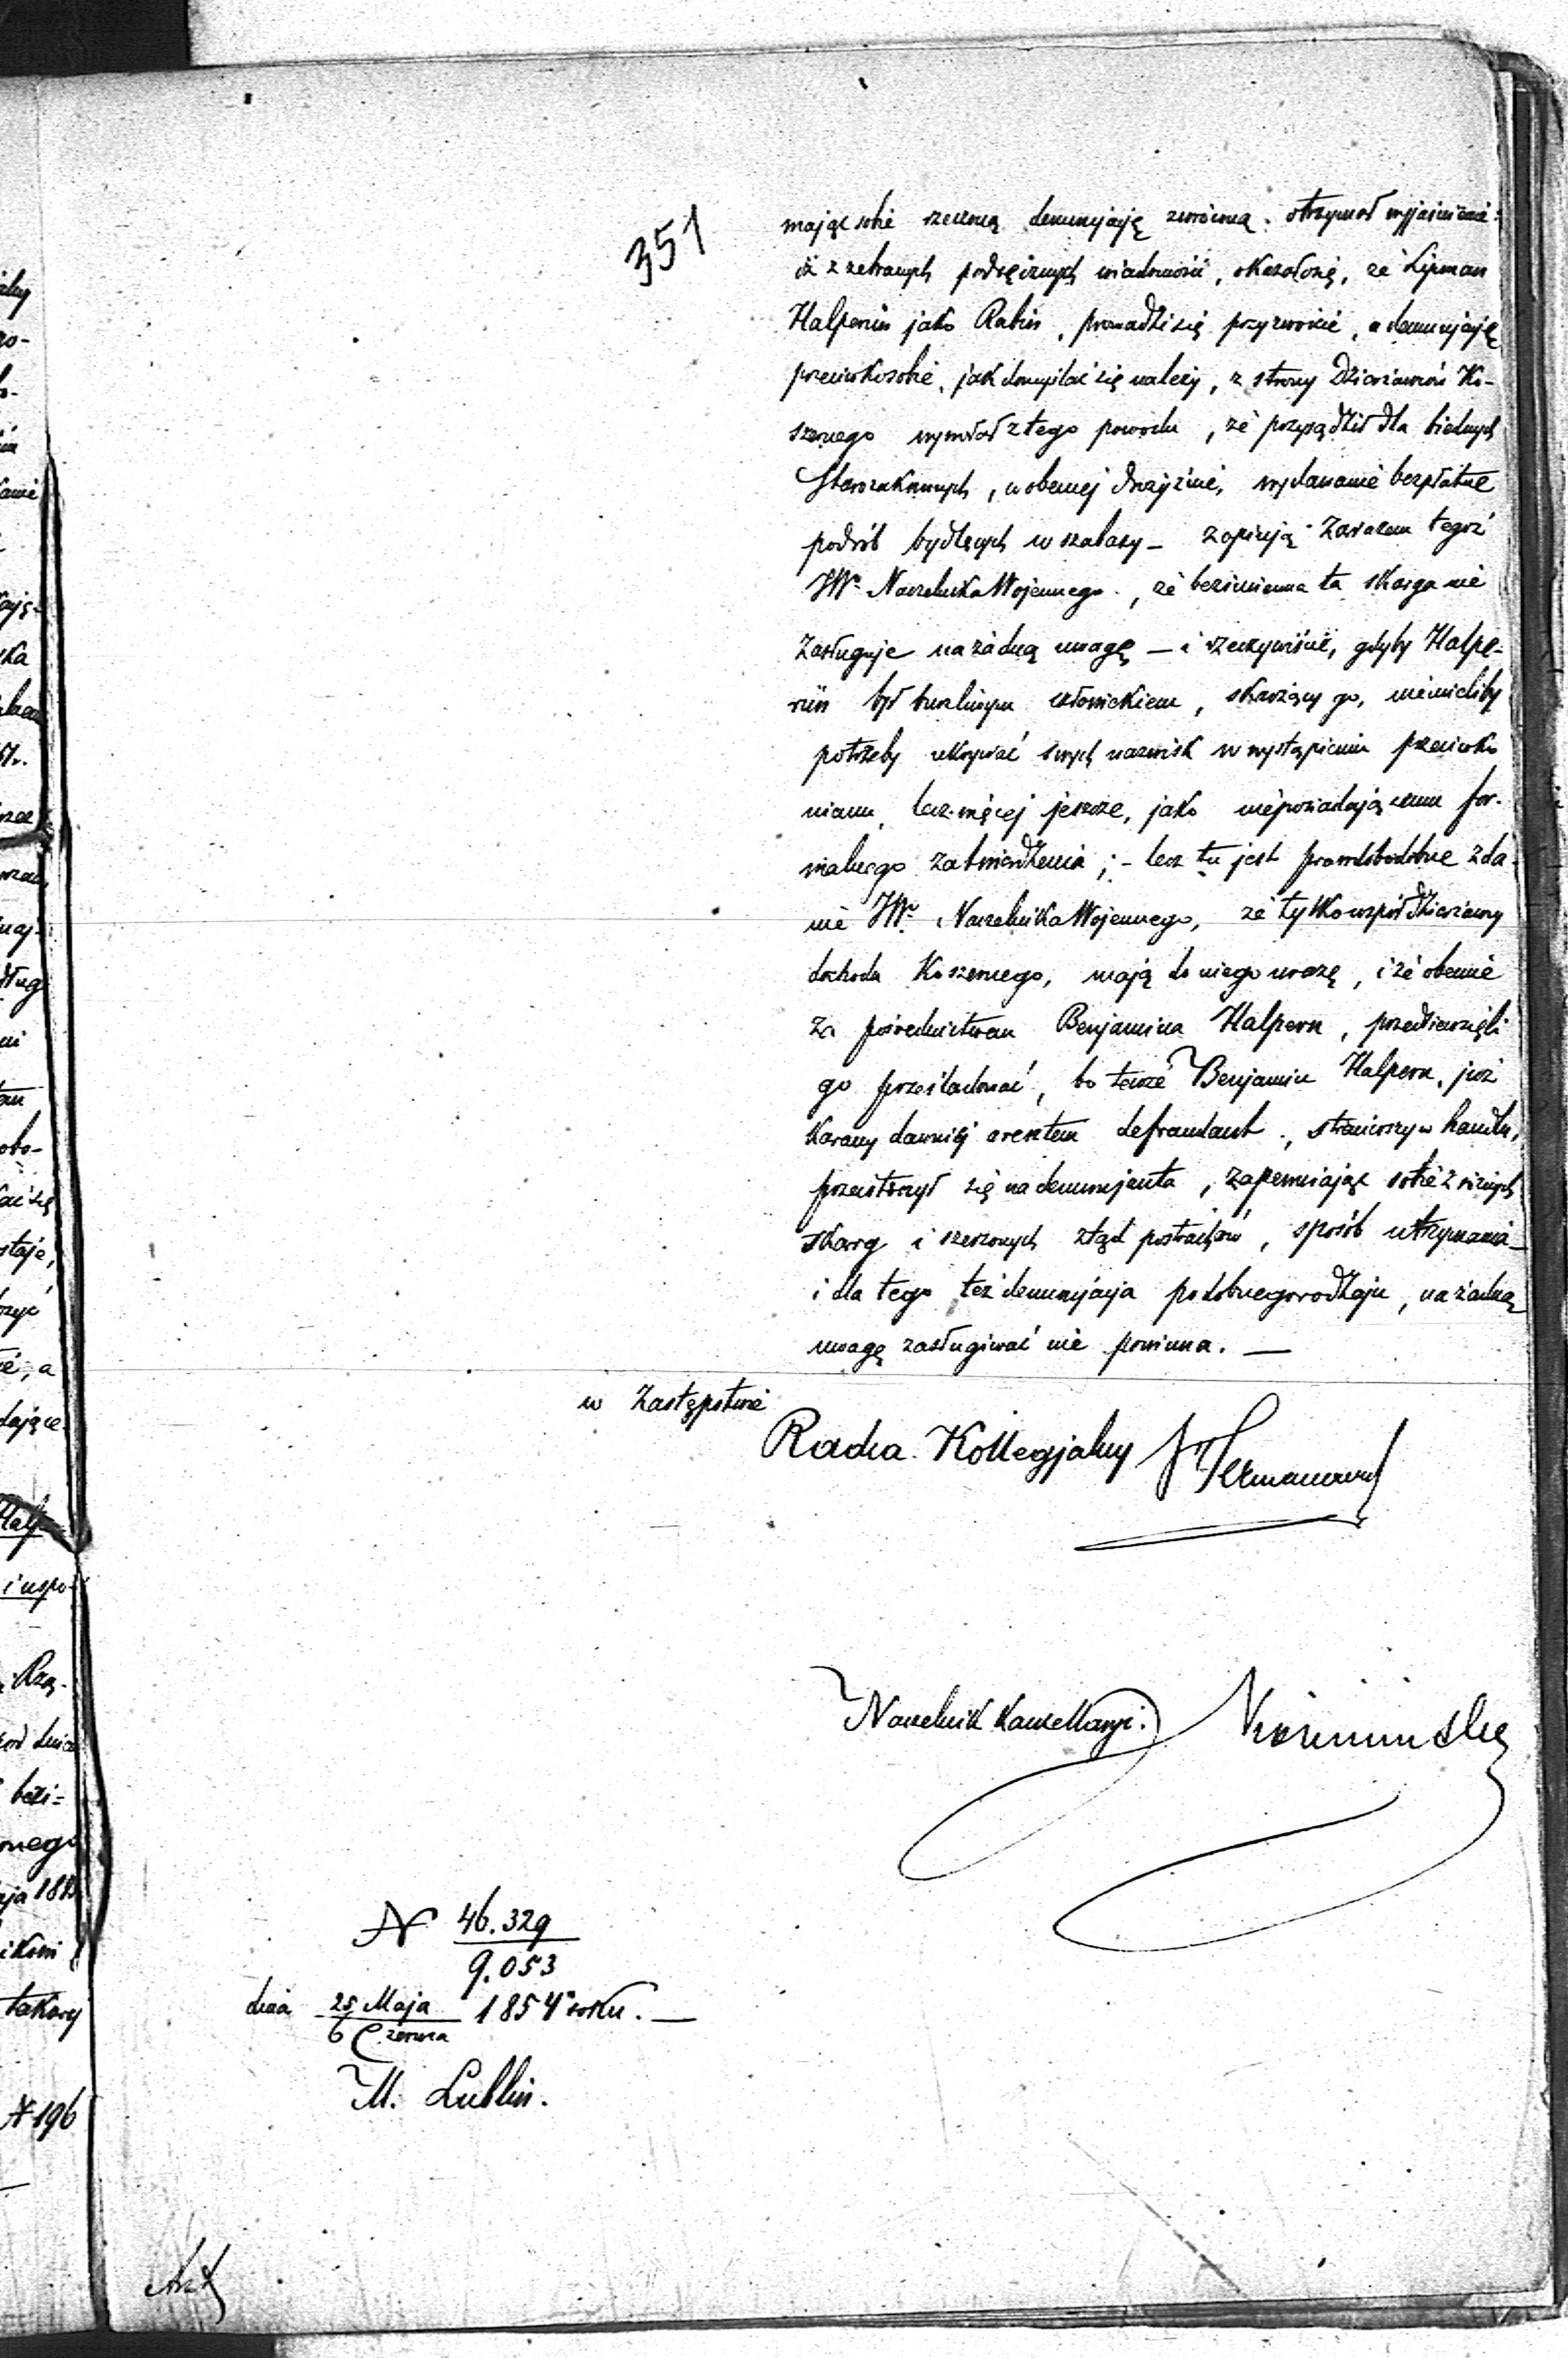 351
mając sobie rzeczoną denuncjację zwróconą. otrzymał wyjaśnienie:
iż z zebranych podręcznych wiadomości, okazałosię, że Lipman
Halperin jako Rabin, prowadzi się przyzwoicie, a denuncjację
przeciwko sobie, jak domyślać się należy, z strony Dzierżawców Ko-
szernego wywołał z tego powodu, że przysądził dla biednych
Starozakonnych, w obecnej drożyźnie, wydawanie bezpłatne
podrób bydlęcych w szabasy – zarazem tegoż
JW. Naczelnika Wojennego, że bezimienna ta skarga nie
zasługuje na żadną uwagę – i rzeczywiście, gdyby Halpe-
rin był burzliwym człowiekiem, skarżący go, niemieliby
potrzeby ukrywać swych nazwisk w wystąpieniu przeciwko
niemu, tem więcej jeszcze, jako nieposiadającemu for-
malnego zatwierdzenia; – lecz tu jest prawdobodobne zda-
nie JW. Naczelnika Wojennego, że tylko współdzierżawcy
dochodu Koszernego, mają do niego urazę, i że obecnie
za pośrednictwem Benjamina Halpern, przedsiewzięli
go prześladować, bo tenże Benjamin Halpern, już
karany dawniej aresztem defraudant, straciwszy w handlu,
przeistoczył się na denuncjanta, zapewniając sobie z różnych
skarg i szerzonych ztąd postrachów, sposób utrzymania –
i dla tego też denuncjacja podobnego rodzaju, na żadną
uwagę zasługiwać nie powinna. —
w Zastępstwie
Radca Kollegjalny
Naczelnik Kancellaryi:
N 46.329
9.053
dnia 25 Maja 1854 roku. —
6 Czerwca
M. Lublin.